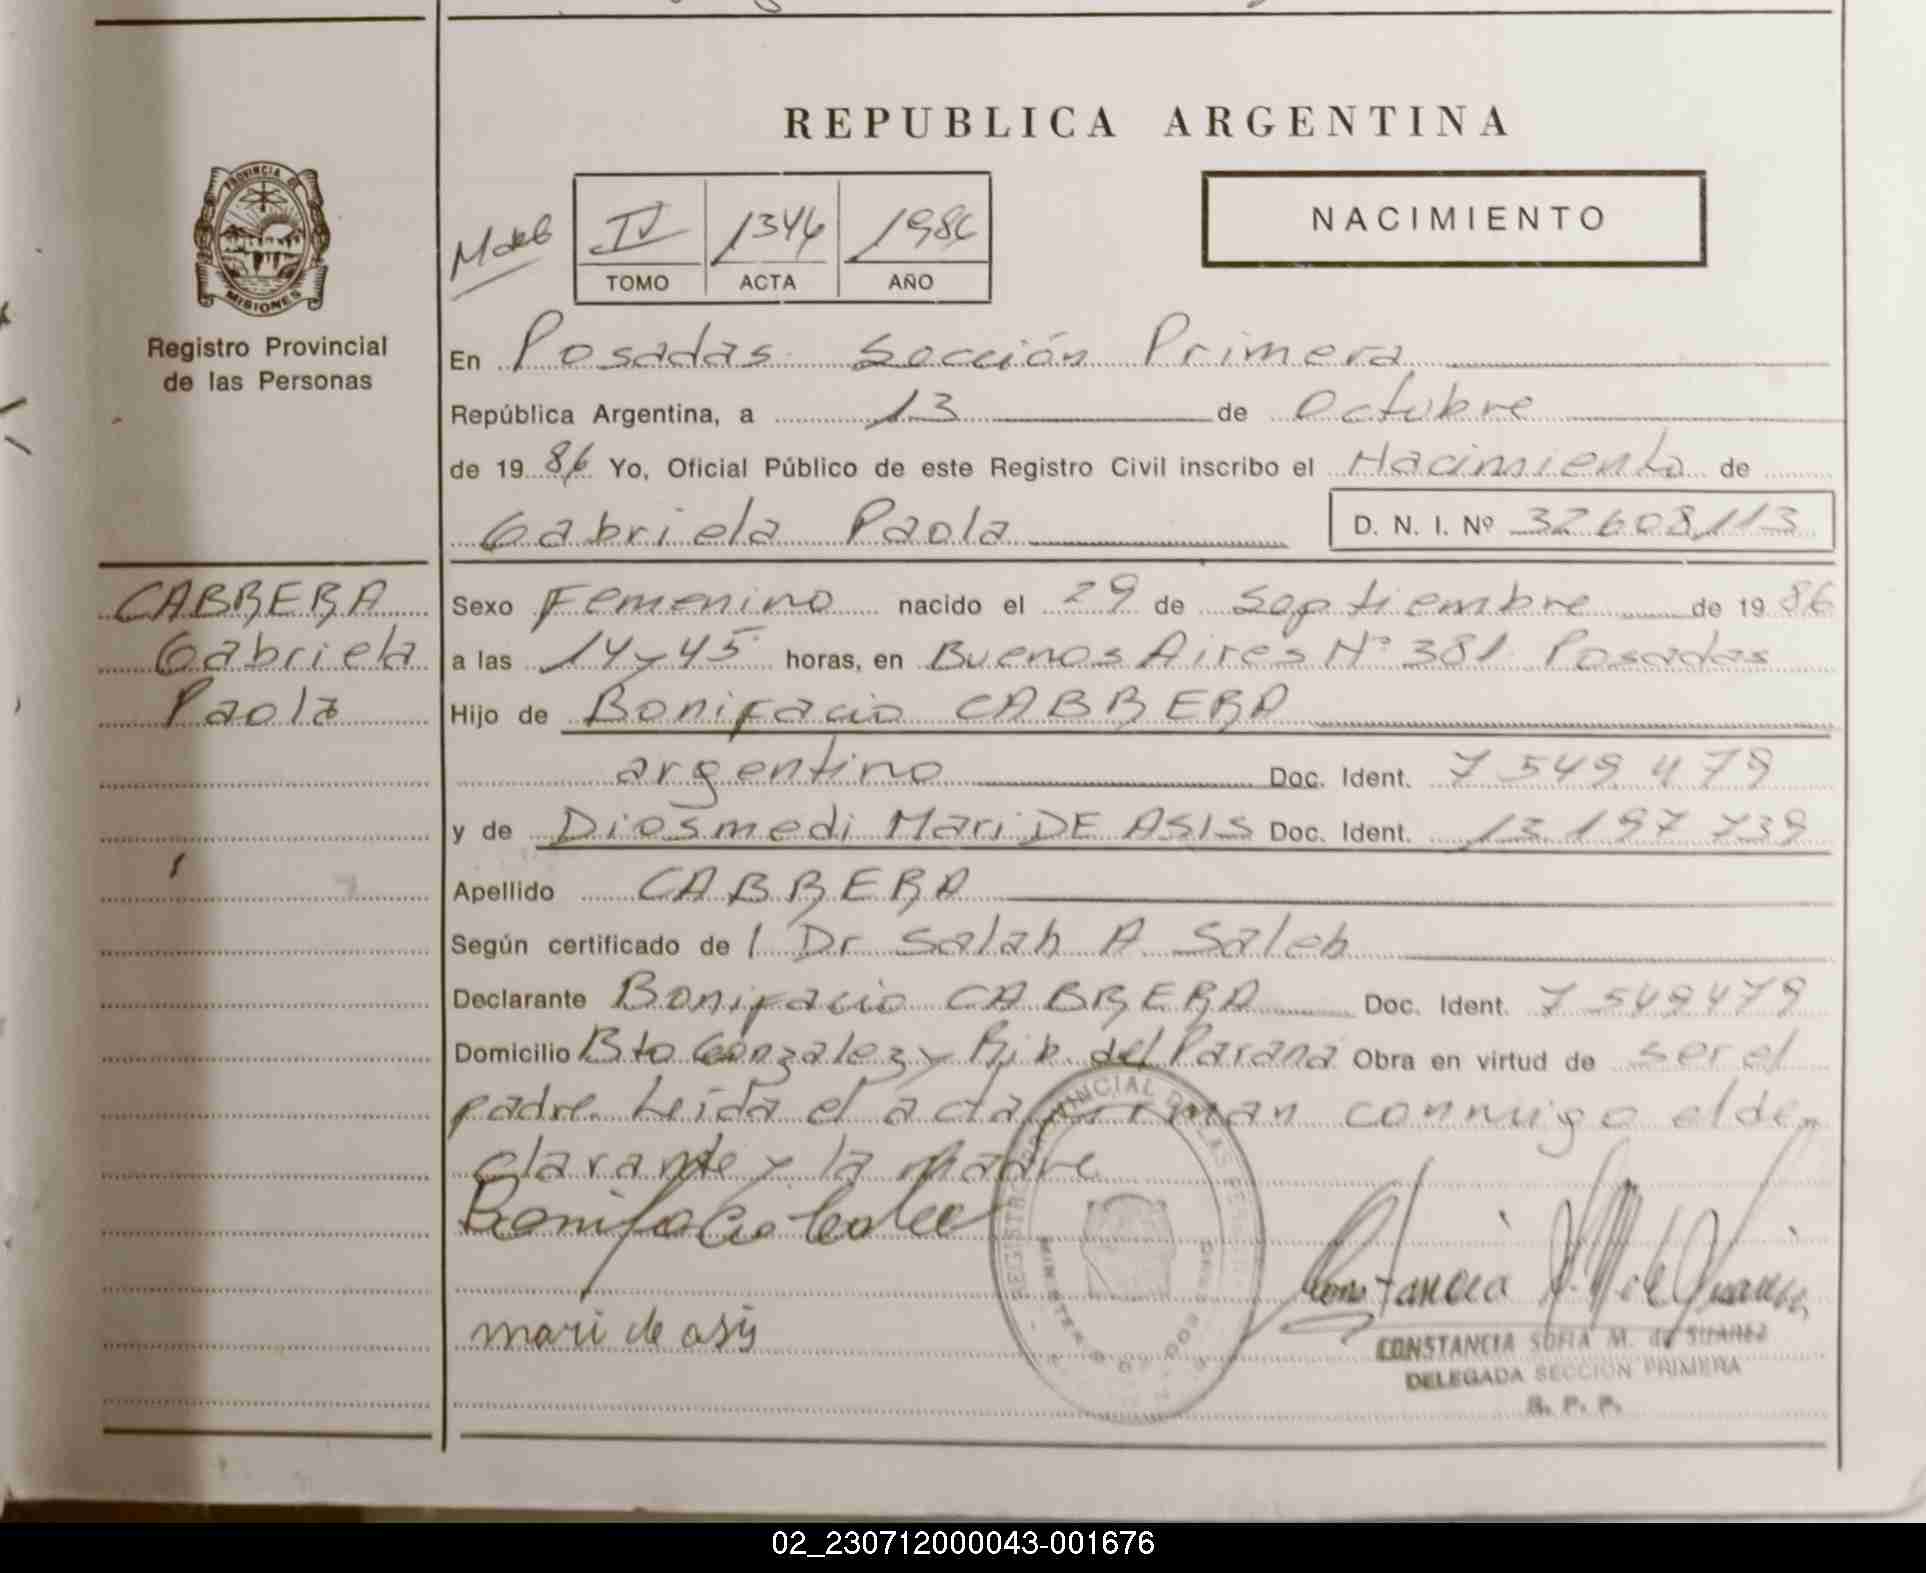 REPUBLICA ARGENTINA
PROVINCIA DE
MISIONES
Registro Provincial
de las Personas
IV 1346 1986
TOMO ACTA AÑO
NACIMIENTO
En Posadas Sección Primera
República Argentina, a 13 de Octubre
de 1986 Yo, Oficial Público de este Registro Civil inscribo el Nacimiento de
Gabriela Paola D. N. I. Nº 32608113
CABRERA
Gabriela
Paola
Sexo Femenino nacido el 29 de Septiembre de 1986
a las 14 y 45 horas, en Buenos Aires Nº 381 Posadas
Hijo de Bonifacio CABRERA
argentino Doc. Ident. 7 549 479
y de Diosmedi Mari DE ASIS Doc. Ident. 13 197 739
Apellido CABRERA
Según certificado de l Dr Salah A Saleh
Declarante Bonifacio CABRERA Doc. Ident. 7 549479
Domicilio Bto Gonzalez y Rib. del Parana Obra en virtud de ser el
padre. Leída el acta firman conmigo el de
clarante y la madre
Bonifacio
mari de asis
CONSTANCIA SOFIA M. de SUAREZ
DELEGADA SECCION PRIMERA
R. P. P.
02_230712000043-001676